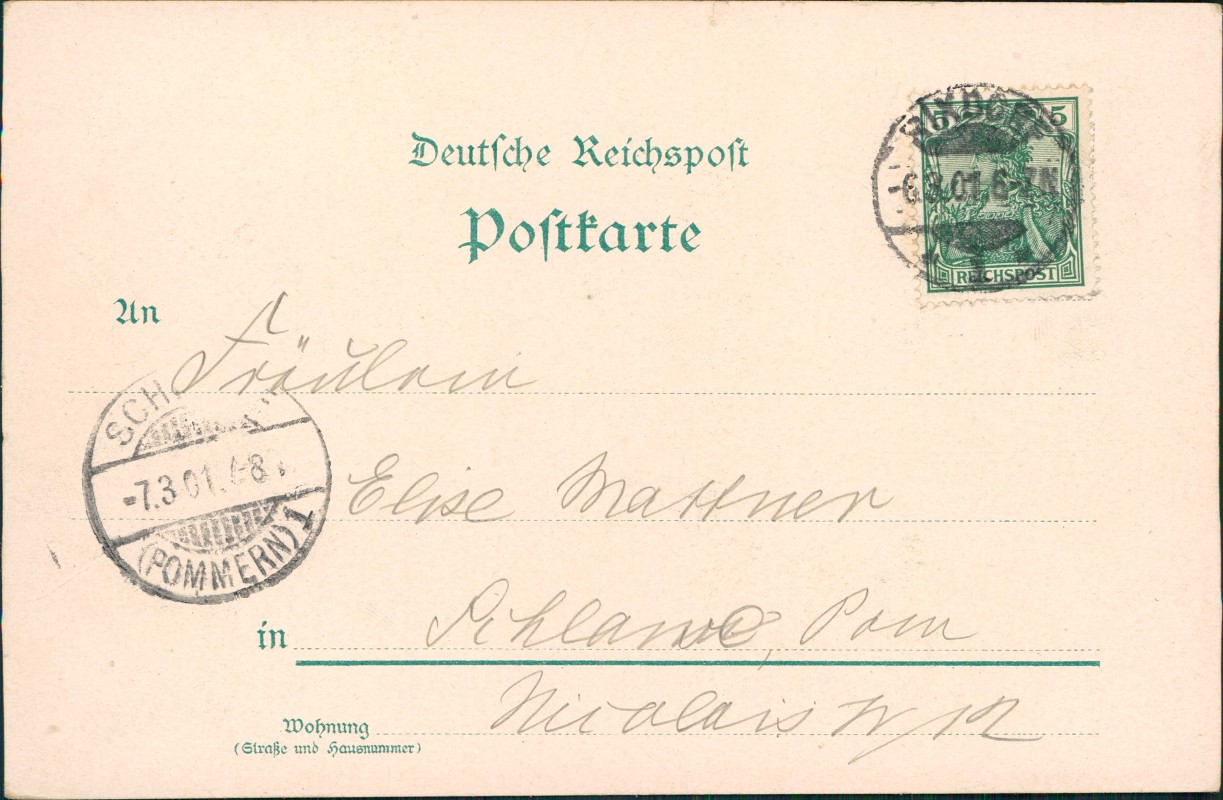 Deutsche Reichspost
Postkarte
5 5
RIXDORF
-6.3.01.6-7N
1
REICHSPOST
An
Fräulein
Elise Mattner
SCH
-7.3.01.
(POMMERN) 1
in Schlawe, Pom
Wohnung
(Straße und Hausnummer)